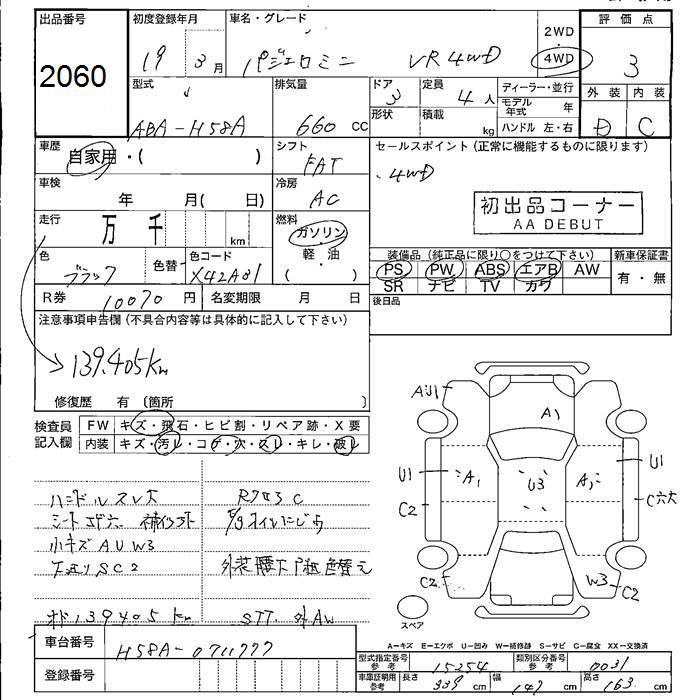 出品番号
2060
初度登録年月
19 3 月
車名・グレード
パジェロミニ VR 4WD
2WD
・
4WD
評価点
3
外装 内装
D C
型式
ABA-H58A
排気量
660 cc
ドア
3
形状
定員
4 人
積載
kg
ディーラー・並行
モデル年式 年
ハンドル 左・右
車歴
自家用・( )
シフト
FAT
セールスポイント(正常に機能するものに限ります)
、4WD
初出品コーナー
AA DEBUT
車検
年 月( 日)
冷房
AC
走行
万 千
km
燃料
ガソリン・
軽・油
( )
色
ブラック
色替
色コード
X42A01
装備品(純正品に限り○をつけて下さい)
PS PW ABS エアB AW
SR ナビ TV カワ
新車保証書
有・無
後日品
R券 10070 円
名変期限 月 日
注意事項申告欄(不具合内容等は具体的に記入して下さい)
139.405km
修復歴 有 〔箇所 〕
検査員
記入欄
FW キズ・飛石・ヒビ割・リペア跡・X要
内装 キズ・汚レ・コゲ・穴・スレ・キレ・破レ
ハンドルスレ大
小キズAUW3
下廻りSC2
外装腰下
色替え
139405km
外AW
車台番号
H58A-0711777
登録番号
AU1
A1
U1
C2
A1
U3
A1
U1
C穴大
C2
W3
C2
スペア
A―キズ E―エクボ U―凹み W―補修跡 S―サビ C―腐食 XX―交換済
型式指定番号
参考
15254
類別区分番号
参考
0031
車庫証明用
参考
長さ 339 cm
幅 147 cm
高さ 163 cm